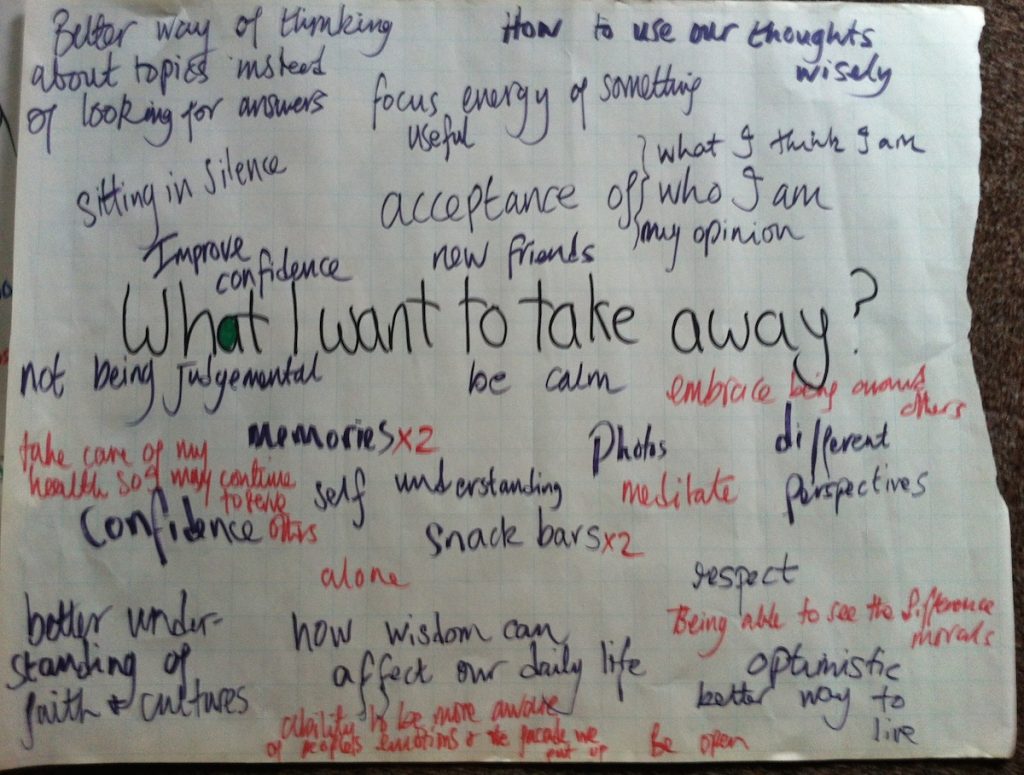 Better way of thinking
about topics instead
of looking for answers
How to use our thoughts
wisely
focus energy of something
useful
sitting in silence
acceptance of
what I think I am
who I am
my opinion
Improve
confidence
new friends
What I want to take away?
not being judgemental
be calm
embrace being around
others
take care of my
health so I may continue
to serve
others
memories x2
Photos
different
perspectives
self understanding
meditate
Confidence
snack bars x2
alone
respect
better under-
standing of
faith & cultures
how wisdom can
affect our daily life
Being able to see the difference
morals
optimistic
better way to
live
ability to be more aware
of peoples emotions & the facade we
put up
be open